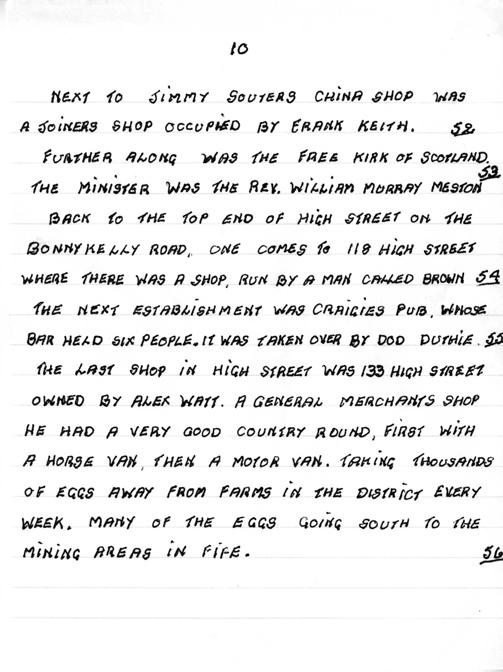 10
NEXT TO JIMMY SOUTERS CHINA SHOP WAS
A JOINERS SHOP OCCUPIED BY FRANK KEITH. 52
FURTHER ALONG WAS THE FREE KIRK OF SCOTLAND.
THE MINISTER WAS THE REV. WILLIAM MURRAY MESTON 53
BACK TO THE TOP END OF HIGH STREET ON THE
BONNYKELLY ROAD, ONE COMES TO 118 HIGH STREET
WHERE THERE WAS A SHOP, RUN BY A MAN CALLED BROWN 54
THE NEXT ESTABLISHMENT WAS CRAIGIES PUB, WHOSE
BAR HELD SIX PEOPLE. IT WAS TAKEN OVER BY DOD DUTHIE. 55
THE LAST SHOP IN HIGH STREET WAS 133 HIGH STREET
OWNED BY ALEX WATT. A GENERAL MERCHANTS SHOP
HE HAD A VERY GOOD COUNTRY ROUND, FIRST WITH
A HORSE VAN, THEN A MOTOR VAN. TAKING THOUSANDS
OF EGGS AWAY FROM FARMS IN THE DISTRICT EVERY
WEEK. MANY OF THE EGGS GOING SOUTH TO THE
MINING AREAS IN FIFE. 56